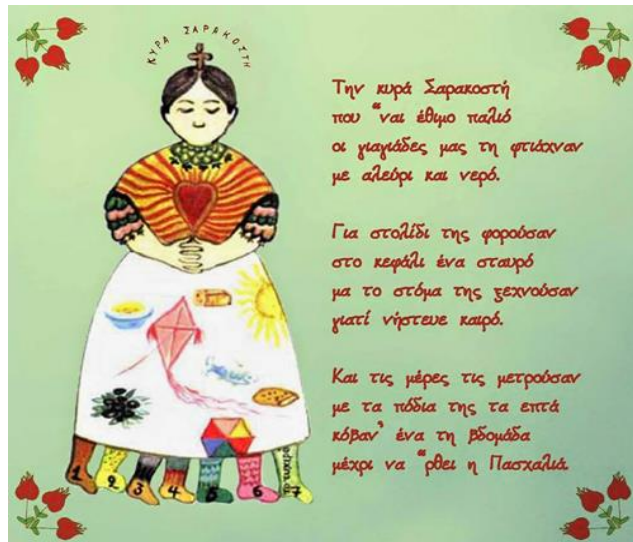 ΚΥΡΑ ΣΑΡΑΚΟΣΤΗ
Την κυρά Σαρακοστή
που "ναι έθιμο παλιό
οι γιαγιάδες μας τη φτιάχναν
με αλεύρι και νερό.
Για στολίδι της φορούσαν
στο κεφάλι ένα σταυρό
μα το στόμα της ξεχνούσαν
γιατί νήστευε καιρό.
Και τις μέρες τις μετρούσαν
με τα πόδια της τα επτά
κόβαν' ένα τη βδομάδα
μέχρι να "ρθει η Πασχαλιά.
1 2 3 4 5 6 7